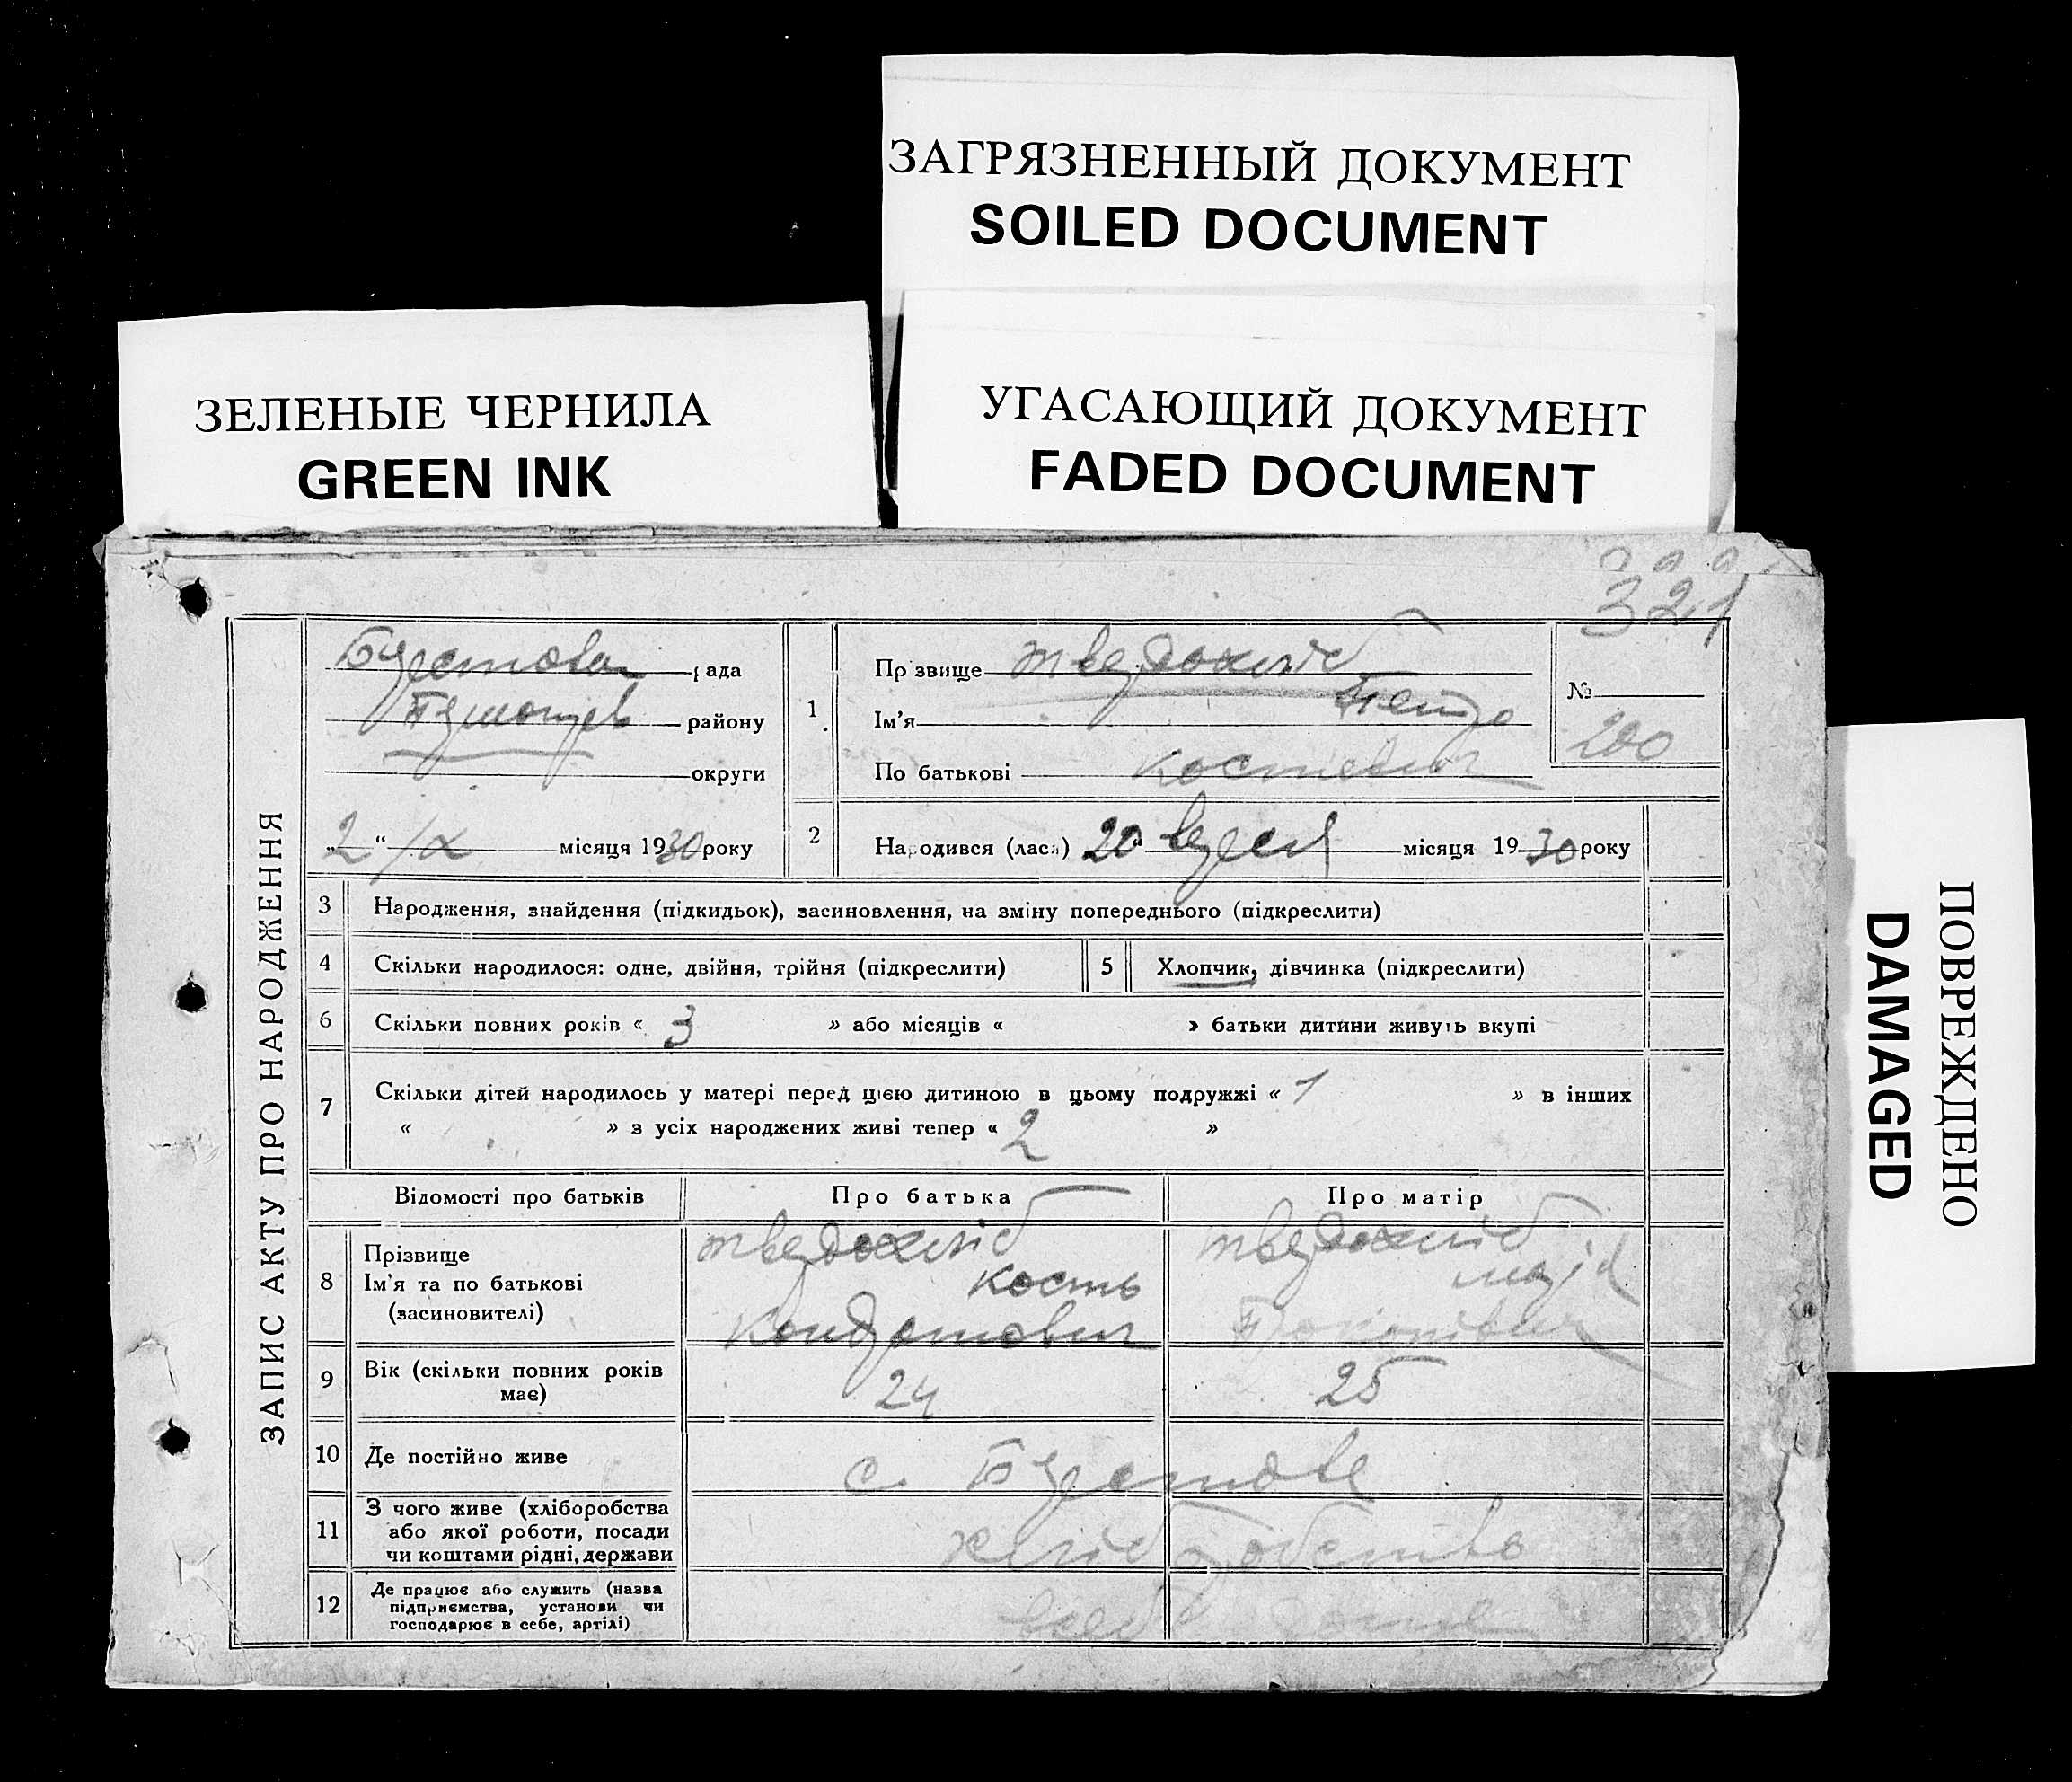 ЗАГРЯЗНЕННЫЙ ДОКУМЕНТ
SOILED DOCUMENT
ЗЕЛЕНЫЕ ЧЕРНИЛА
GREEN INK
УГАСАЮЩИЙ ДОКУМЕНТ
FADED DOCUMENT
ПОВРЕЖДЕНО
DAMAGED
321
ЗАПИС АКТУ ПРО НАРОДЖЕННЯ
рада
району
округи
„2“ /IX місяця 1930 року
1
Прізвище Твердохліб
Ім'я Петро
По батькові Костевич
№
200
2
Народився (лася) 20 вересня місяця 1930 року
3 Народження, знайдення (підкидьок), засиновлення, на зміну попереднього (підкреслити)
4 Скільки народилося: одне, двійня, трійня (підкреслити)
5 Хлопчик, дівчинка (підкреслити)
6 Скільки повних років « 3 » або місяців « » батьки дитини живуть вкупі
7 Скільки дітей народилось у матері перед цією дитиною в цьому подружжі « 1 » в інших
« » з усіх народжених живі тепер « 2 »
Відомості про батьків Про батька Про матір
8 Прізвище
Ім'я та по батькові
(засиновителі)
Твердохліб
Кость
Кондратович
Твердохліб
Марія
9 Вік (скільки повних років
має)
24 25
10 Де постійно живе
с.
11 З чого живе (хліборобства
або якої роботи, посади
чи коштами рідні, держави
хліборобство
12 Де працює або служить (назва
підприємства, установи чи
господарює в себе, артілі)